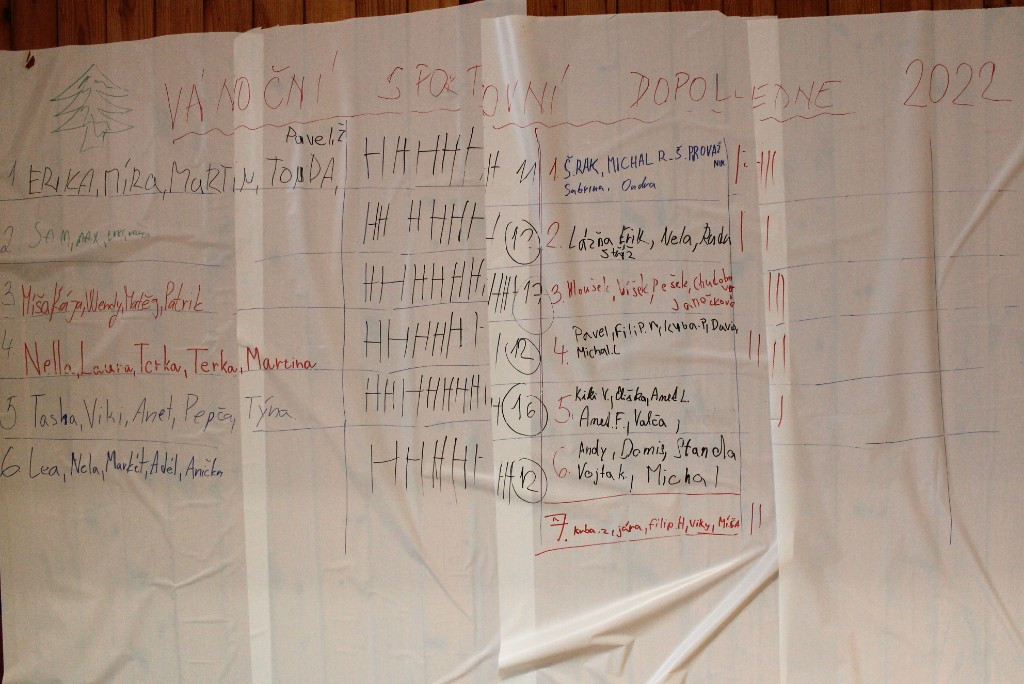 VÁNOČNÍ SPORTOVNÍ DOPOLLEDNE 2022
Pavel Ž
1 ERIKA, MÍRA, MARTIN, TONDA,
11
2 SAM, MAX,
12
3 Míša, Kája, Wendy, Matěj, Patrik
17
4 Nella, Laura, Terka, Terka, Martina
12
5 Tasha, Viki, Anet, Pepča, Týna
16
6. Lea, Nela, Markét, Adél, Anička
12
1. ŠRAK, MICHAL R. Š. PROVAZ
NIK
Sabrina, Ondra
2. Lázňa Erik, Nela, Řanda
3. Hloušek, Víšek, Pešek,
Janečková
4. Pavel, Filip. M, Kuba. P, David,
Michal. L
5. Kiki V., Eliška, Anet L.
Anet. F., Valča,
6. Andy, Domis, Standa
Vojtak, Michal
7. Kuba. Z, Jára, Filip. H, Viky, Míša